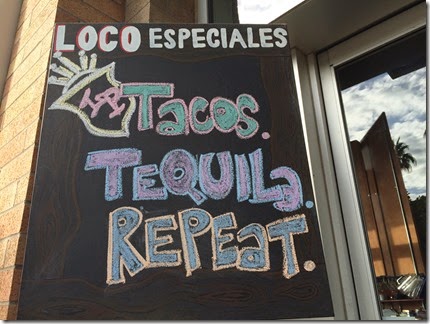 LOCO ESPECIALES
Tacos.
TeQUILa.
REPEaT.